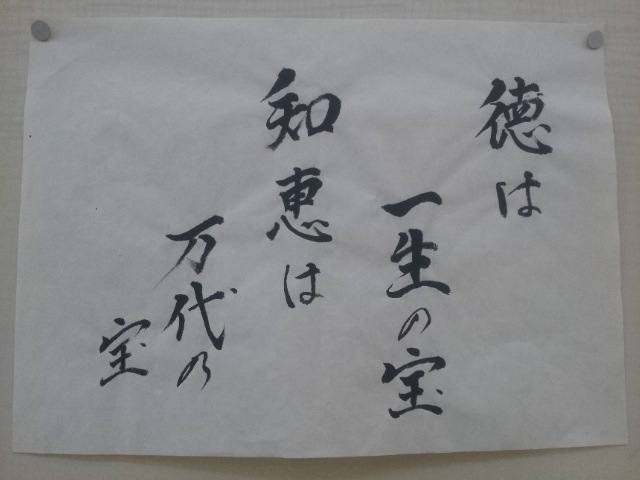 徳は
一生の宝
知恵は
万代の
宝